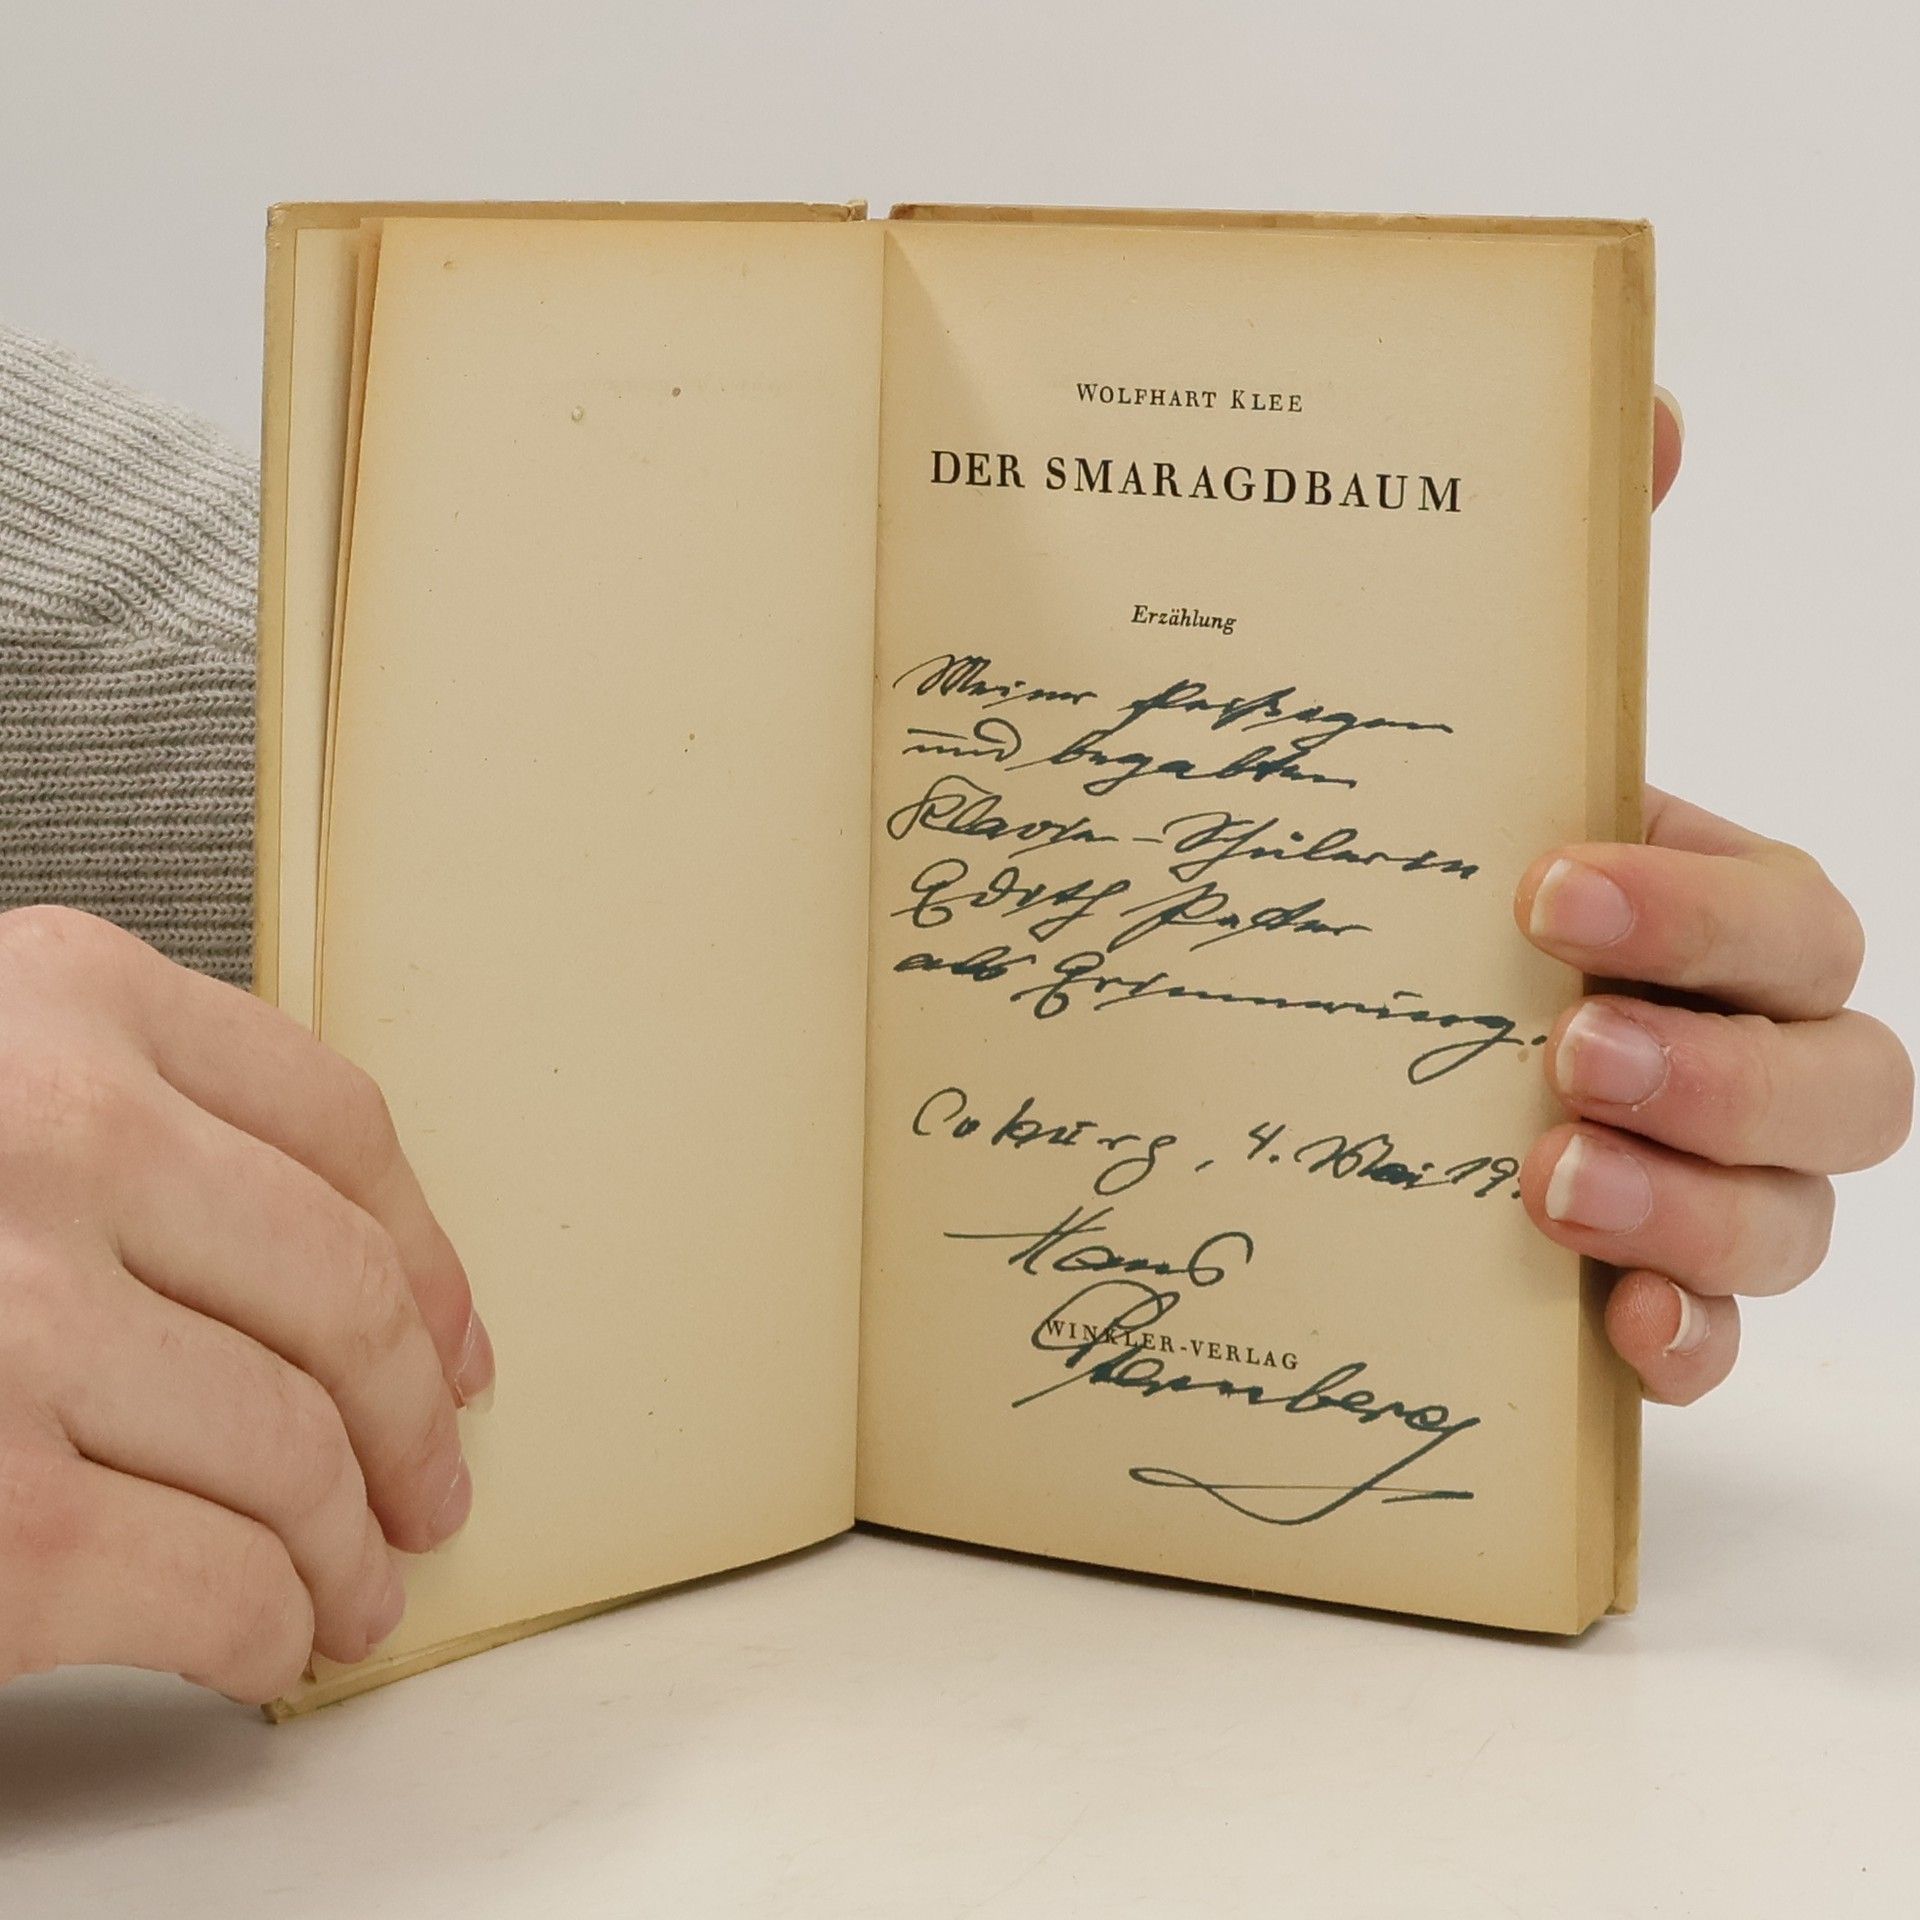 WOLFHART KLEE
DER SMARAGDBAUM
Erzählung
Meiner fleißigen
und begabten
Klavier-Schülerin
Edith
als Erinnerung.
Coburg, 4. Mai 19
Hans
WINKLER-VERLAG